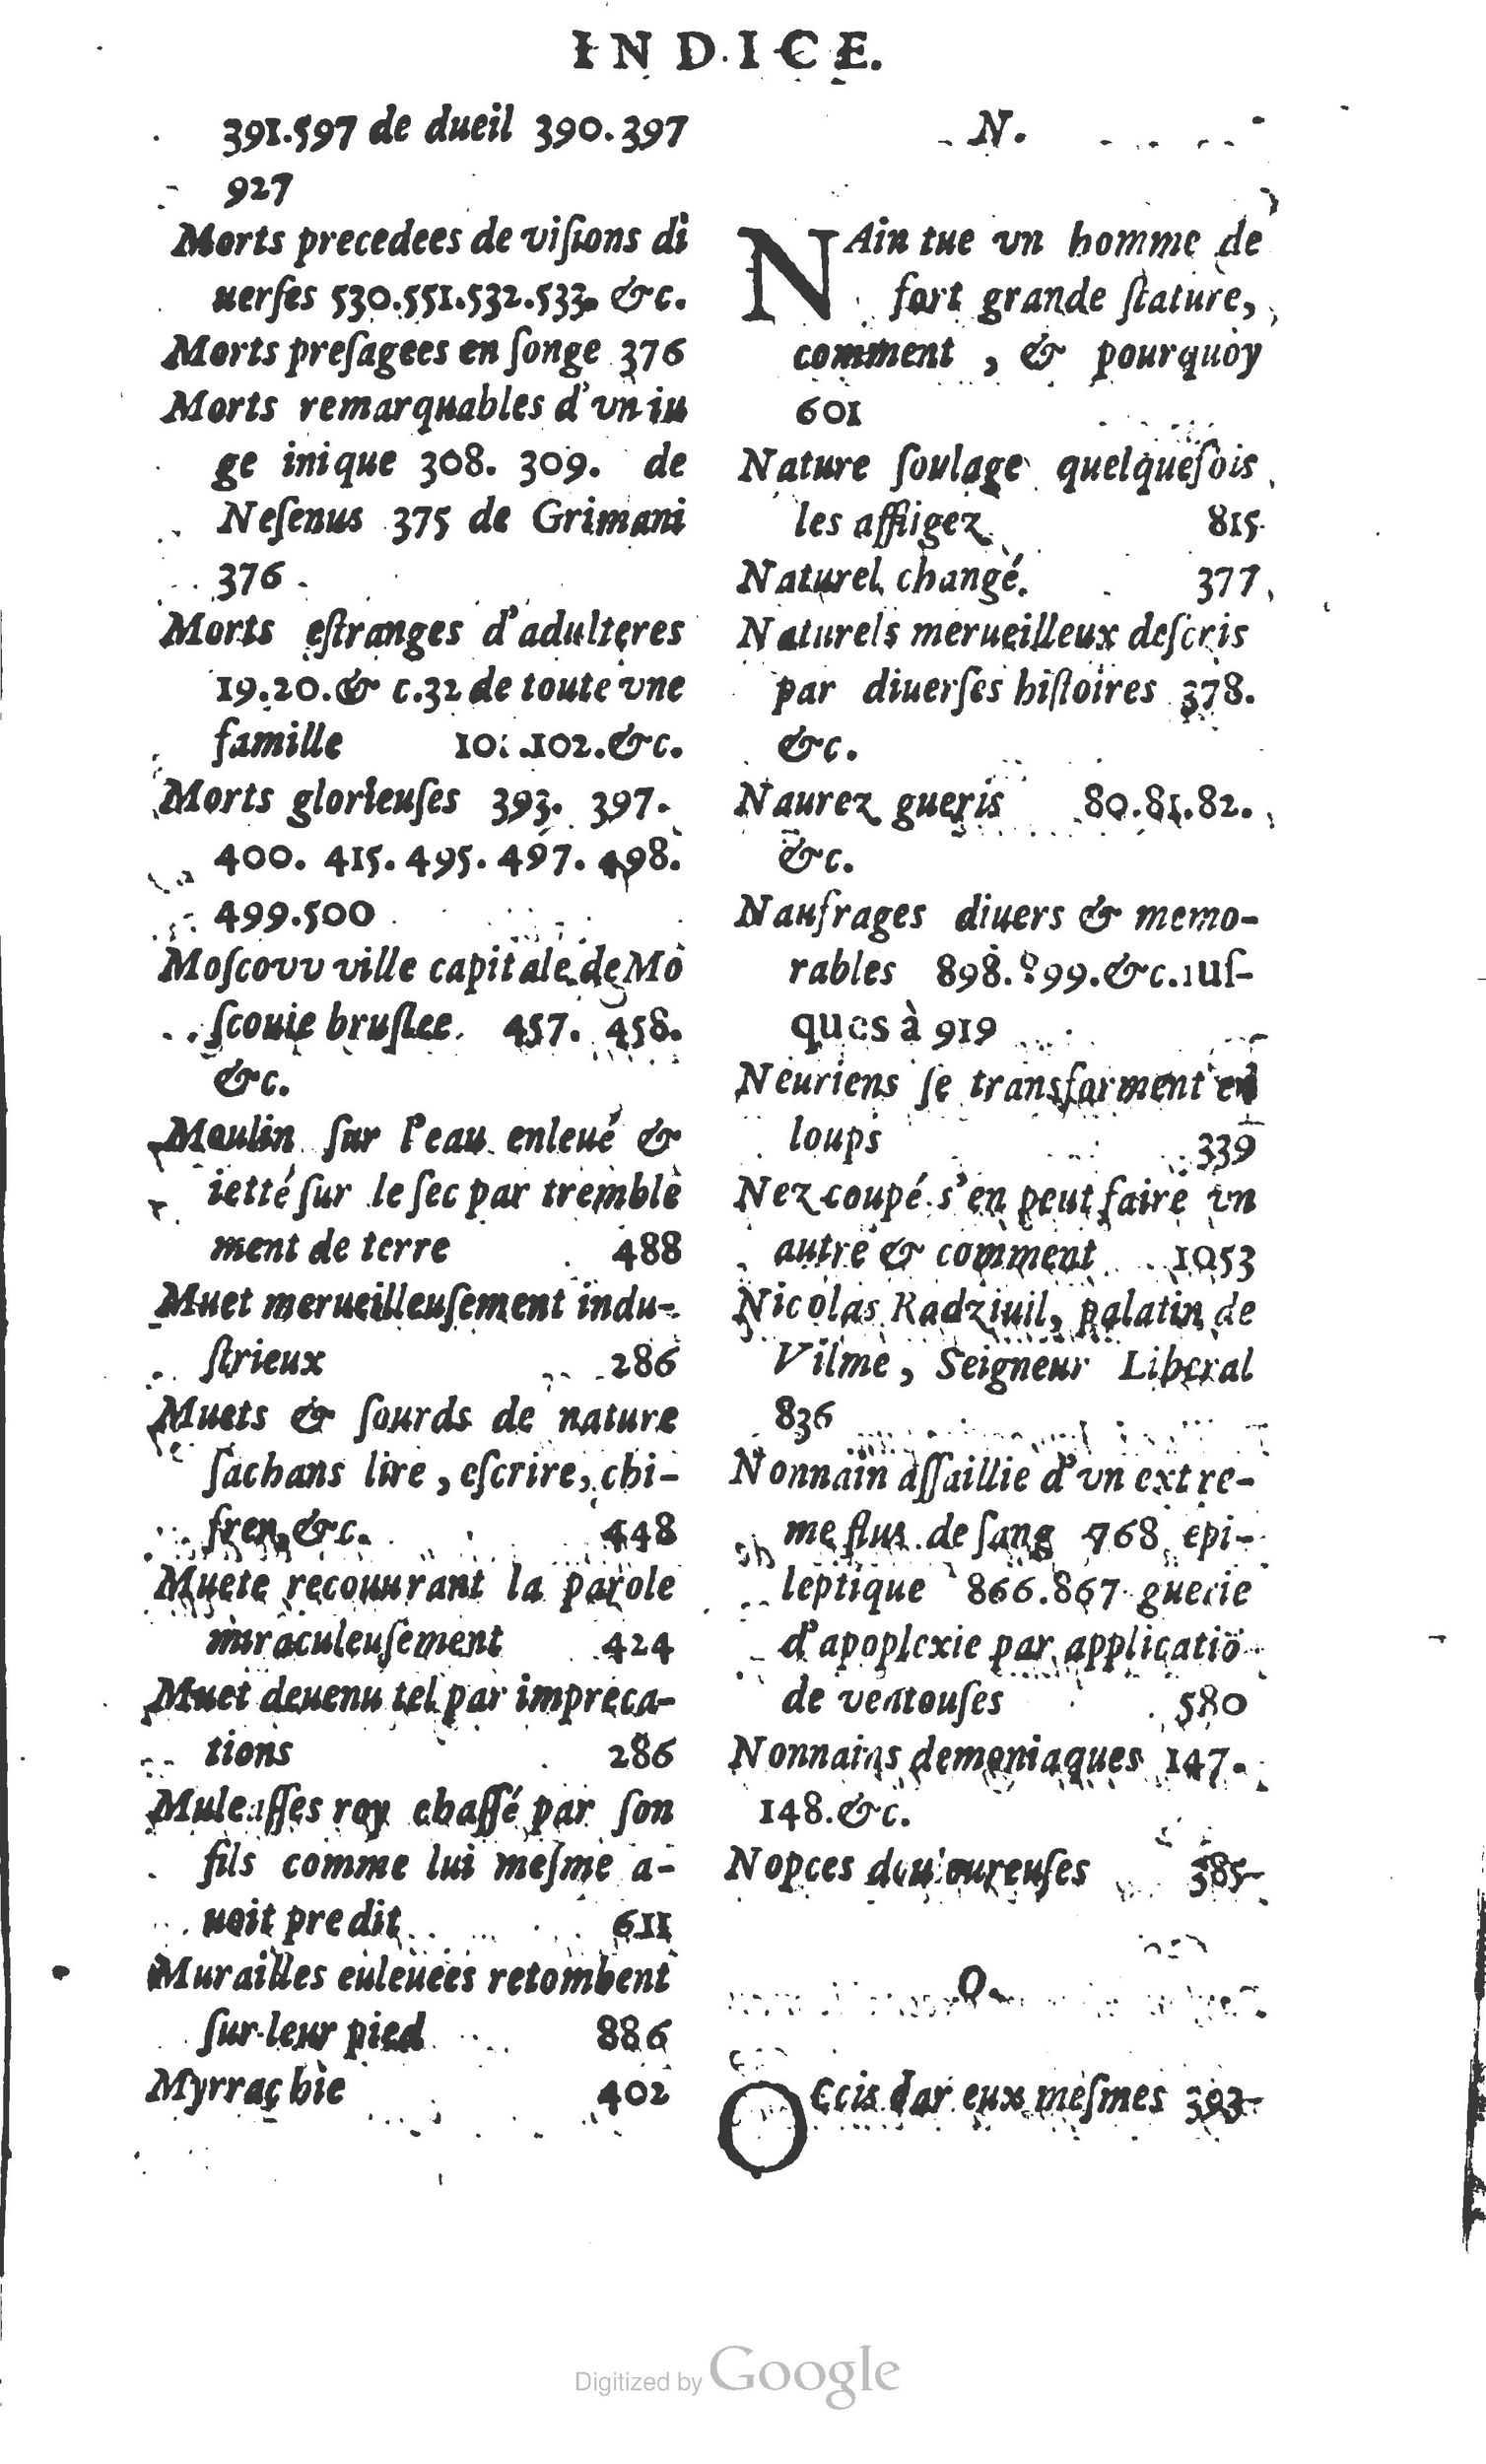 INDICE.
391.597 de dueil 390.397
927
Morts precedees de viſions di
uerſes 530.551.532.533. &c.
Morts preſagees en ſonge 376
Morts remarquables d'vn iu
ge inique 308. 309. de
Neſenus 375 de Grimani
376
Morts eſtranges d'adulteres
19.20.& c.32 de toute vne
famille .102.&c.
Morts glorieuſes 393. 397.
400. 415. 495. 497. 498.
499.500
Moſcovv ville capitale de Mo
ſcouie bruſlee. 457. 458.
&c.
Moulin ſur l'eau enleué &
ietté ſur le ſec par tremble
ment de terre 488
Muet merueilleuſement indu-
ſtrieux 286
Muets & ſourds de nature
ſachans lire, eſcrire, chi-
frer, &c. 448
Muete recouurant la parole
miraculeuſement 424
Muet deuenu tel par impreca-
tions 286
Muleaſſes roy chaſſé par ſon
fils comme lui meſme a-
uoit predit 611
Murailles enleuees retombent
ſur leur pied 886
Myrrachie 402
N.
NAin tue vn homme de
fort grande ſtature,
comment, & pourquoy
601
Nature ſoulage quelqueſois
les affligez 815
Naturel changé. 377
Naturels merueilleux deſcris
par diuerſes hiſtoires 378.
&c.
Naurez gueris 80.81.82.
&c.
Naufrages diuers & memo-
rables 898.899.&c.iuſ-
ques à 919
Neuriens ſe transforment en
loups 339
Nez coupé s'en peut faire vn
autre & comment 1053
Nicolas Radziuil, palatin de
Vilme, Seigneur Liberal
836
Nonnain aſſaillie d'vn extre-
me flux de ſang 768 epi-
leptique 866.867 guerie
d'apoplexie par applicatiō
de ventouſes 580
Nonnains demoniaques 147.
148.&c.
Nopces douloureuſes 385
O.
Occis par eux meſmes 393
Digitized by Google